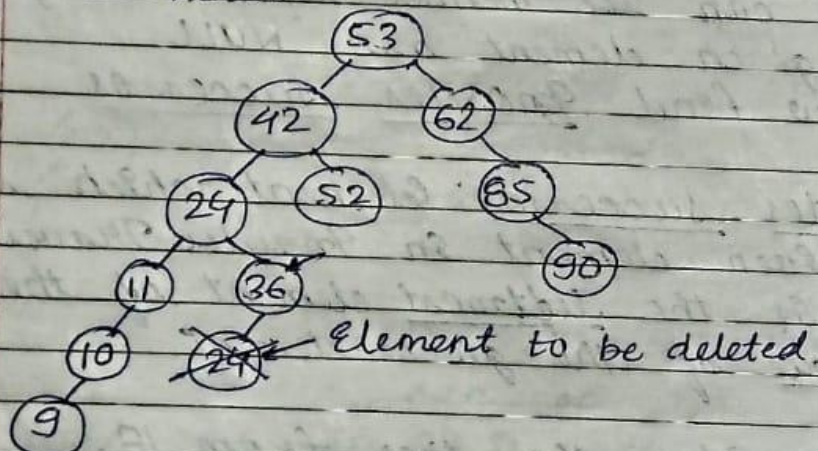 53
42 62
24 52 85
11 36 90
10 24 Element to be deleted.
9